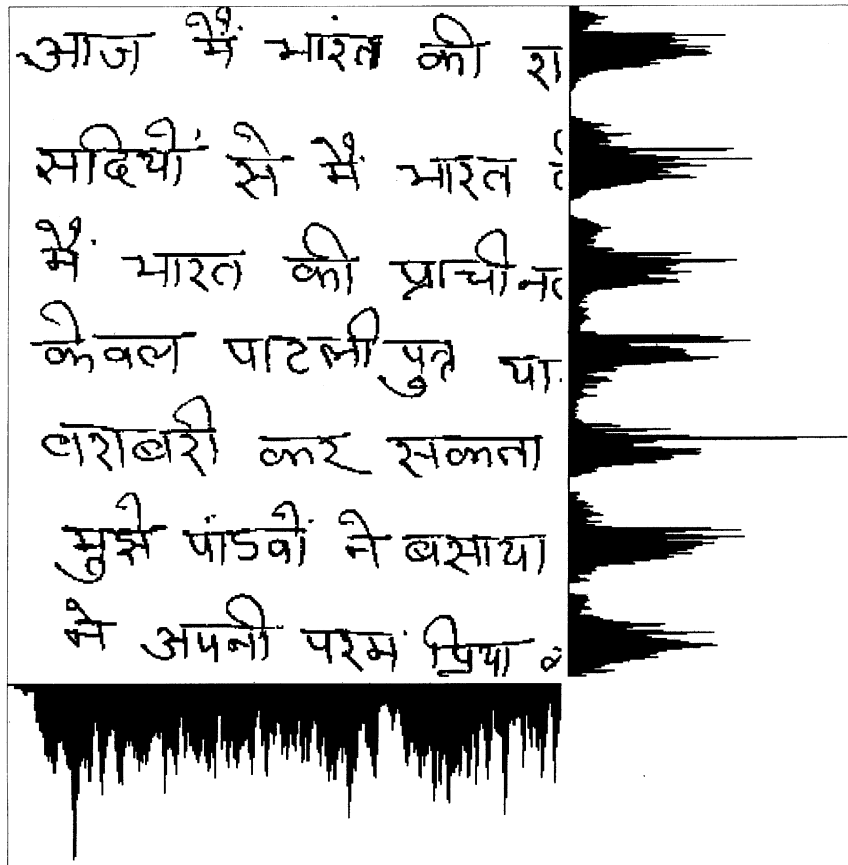 आज मैं भारंत की रा
सदियों से मैं भारत
मैं भारत की प्राचीनत
केवल पाटलीपुत्र या
बराबरी कर सकता
मुझे पांडवों ने बसाया
ने अपनी परम प्रिया